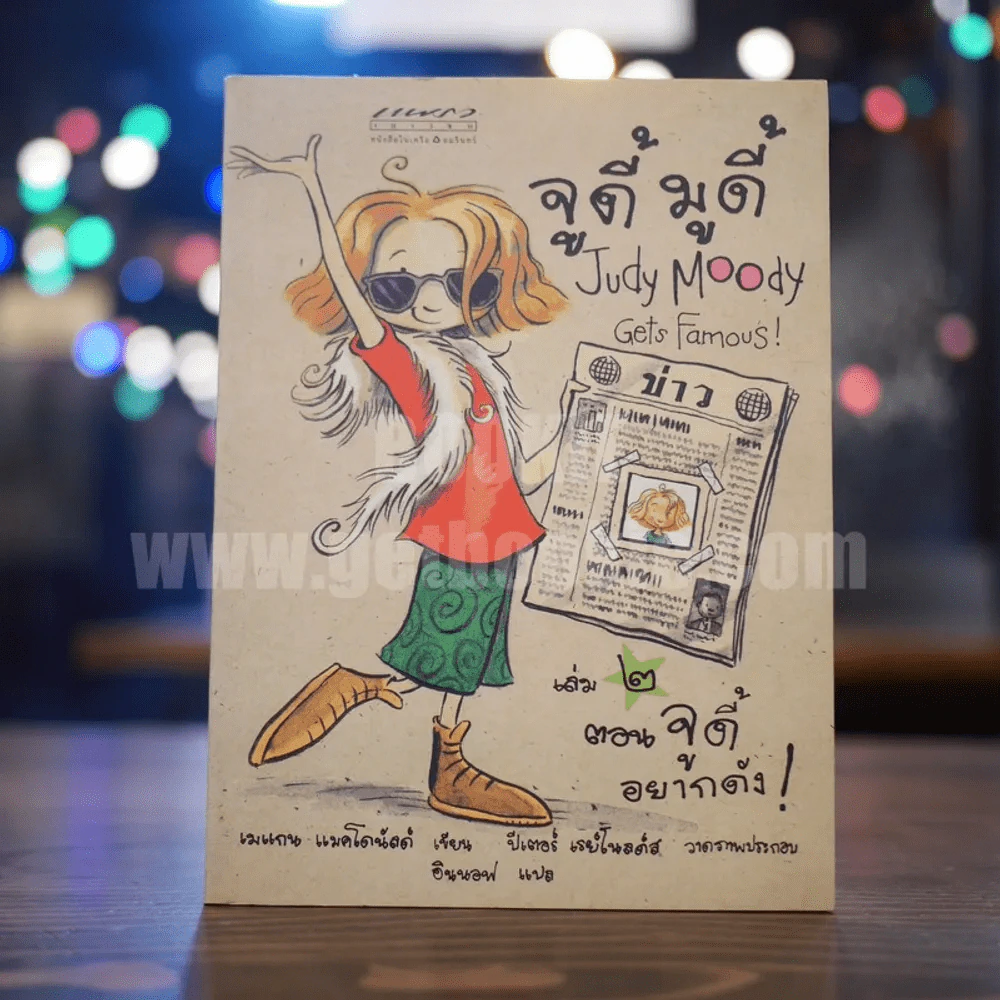 แพรว
เยาวชน
หนังสือในเครือ อมรินทร์
จูดี้ มูดี้
Judy Moody
Gets Famous!
ข่าว
www.getboo .com
เล่ม ๒
ตอน จูดี้
อยากดัง!
เมแกน แมคโดนัลด์ เขียน ปีเตอร์ เรย์โนลด์ส วาดภาพประกอบ
อินนอฟ แปล